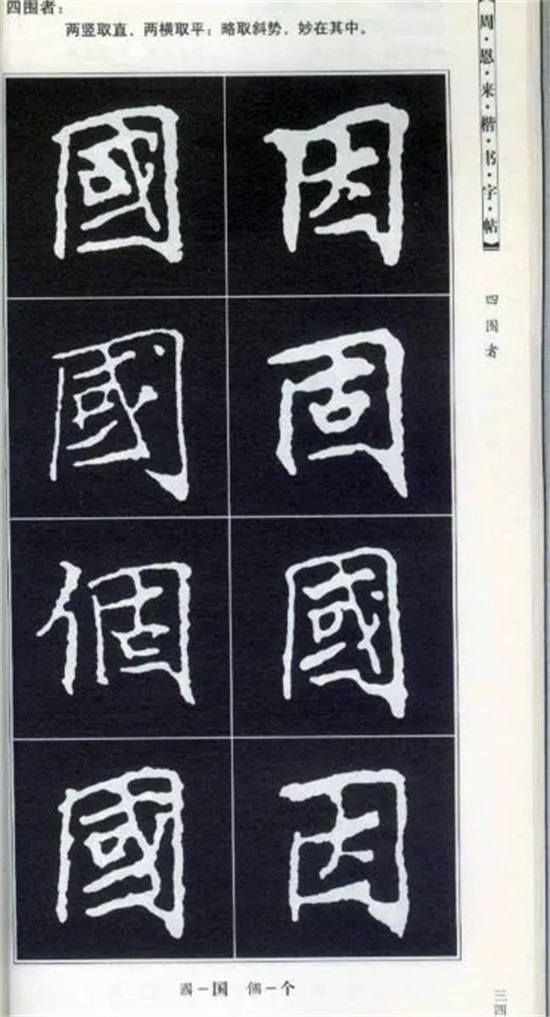 四围者:
两竖取直,两横取平;略取斜势,妙在其中。
國 因
國 固
個 國
國 因
國-国 個-个
【周·恩·来·楷·书·字·帖】
四围者
三四